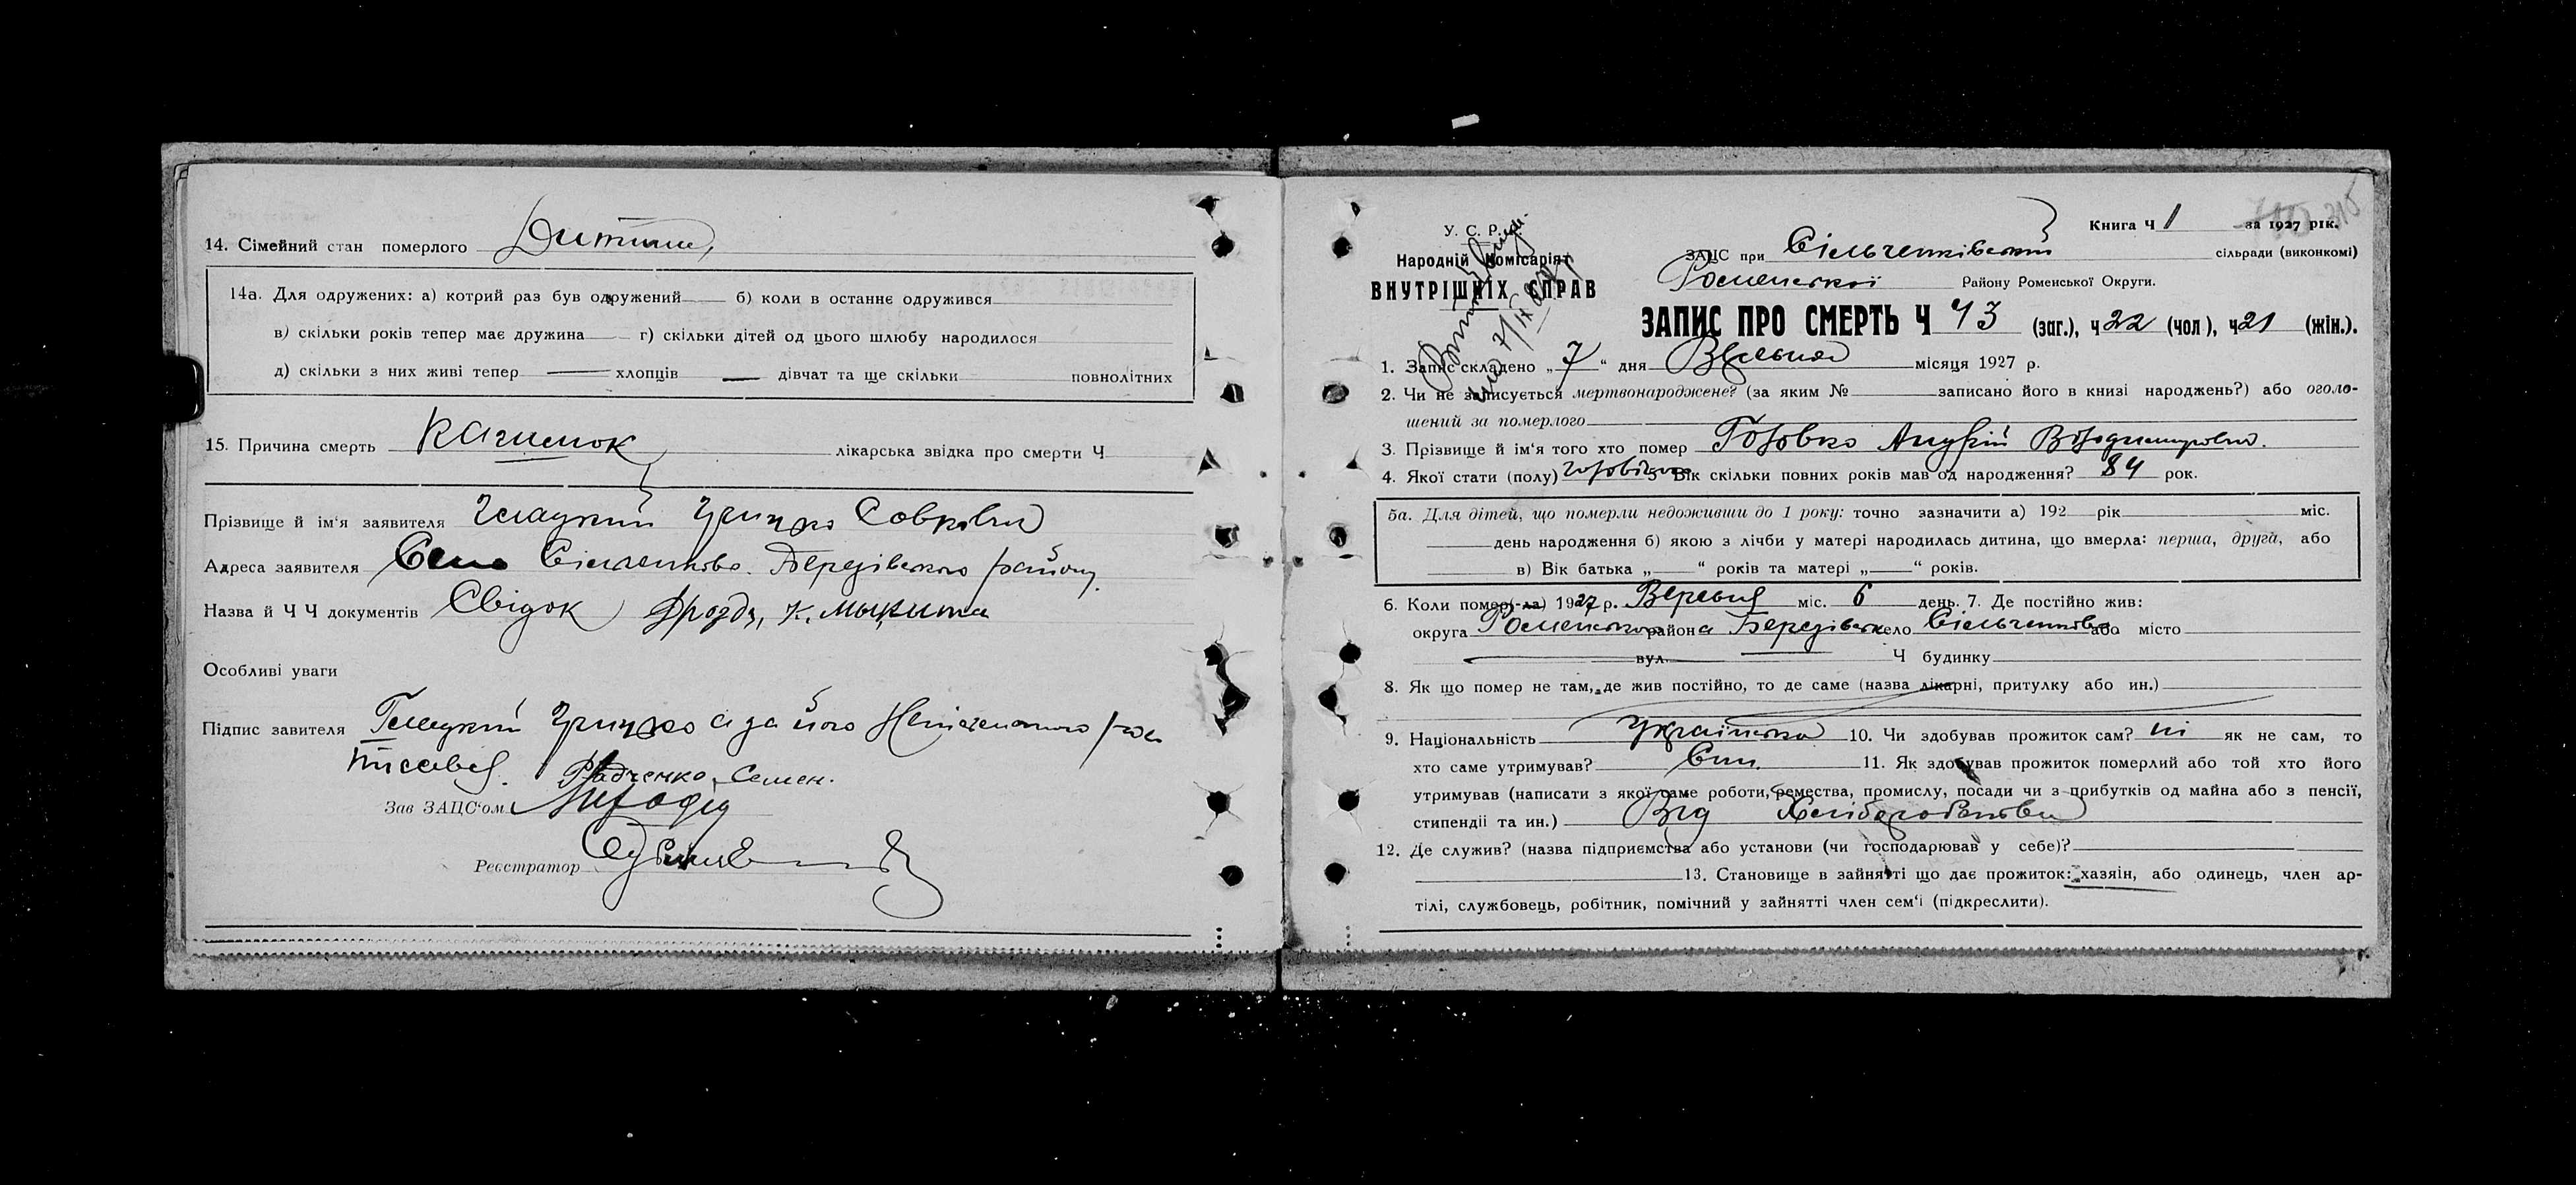 14. Сімейний стан померлого Дитина,
14а. Для одружених: а) котрий раз був одружений б) коли в останнє одружився
в) скільки років тепер має дружина г) скільки дітей од цього шлюбу народилося
д) скільки з них живі тепер хлопців дівчат та ще скільки повнолітних
15. Причина смерть Кашлюк лікарська звідка про смерти Ч
Прізвище й ім'я заявителя Грицко Савкович
Адреса заявителя Село Сільченково Березівского району
Назва й Ч Ч документів Свідок Дрозд, К. Мыкита
Особливі уваги
Підпис завителя Грицко а за його
Радченко Семен.
Зав ЗАЦС'ом
Реєстратор
У. С. Р. Р.
Народній Комісаріят
ВНУТРІШНІХ СПРАВ
Книга Ч 1 за 1927 рік.
ЗАЦС при Сільченківский сільради (виконкомі)
Роменської Району Роменської Округи.
ЗАПИС ПРО СМЕРТЬ Ч 43 (заг.), ч 22 (чол), ч 21 (жін.).
1. Запис складено „7“ дня Вересня місяця 1927 р.
2. Чи не записується мертвонароджене? (за яким № записано його в книзі народжень?) або оголо-
шений за померлого
3. Прізвище й ім'я того хто помер Головко Андрій Володимирович.
4. Якої стати (полу) чоловіч 5 Вік скільки повних років мав од народження? 84 рок.
5а. Для дітей, що померли недоживши до 1 року: точно зазначити а) 192 рік міс.
день народження б) якою з лічби у матері народилась дитина, що вмерла: перша, друга, або
в) Вік батька „ “ років та матері „ “ років.
6. Коли помер(-ла) 1927 р. Вересня міс. 6 день. 7. Де постійно жив:
округа Роменського района Березівськ село Сільченково або місто
вул. Ч будинку
8. Як що помер не там, де жив постійно, то де саме (назва лікарні, притулку або ин.)
9. Національність Українська 10. Чи здобував прожиток сам? ні як не сам, то
хто саме утримував? Син. 11. Як здобував прожиток померлий або той хто його
утримував (написати з якої саме роботи, ремества, промислу, посади чи з прибутків од майна або з пенсії,
стипендії та ин.) Від Хліборобства
12. Де служив? (назва підприємства або установи (чи господарював у себе)?
13. Становище в зайнятті що дає прожиток: хазяїн, або одинець, член ар-
тілі, службовець, робітник, помічний у зайнятті член сем'ї (підкреслити).